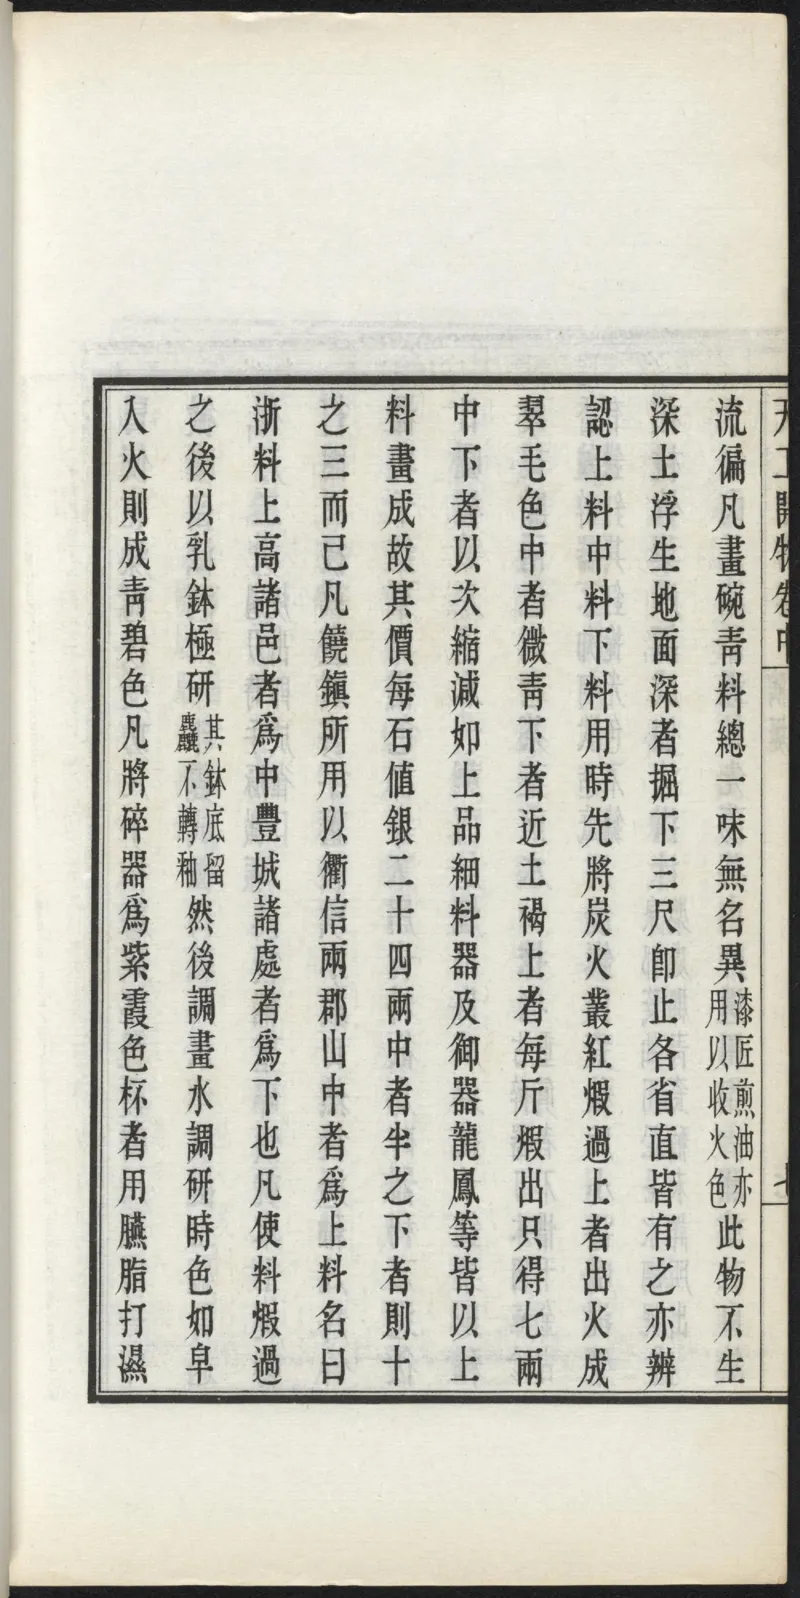 天工開物卷中
七
流徧凡畫碗靑料總一味無名異漆匠煎油亦用以收火色此物不生
深土浮生地面深者掘下三尺卽止各省直皆有之亦辨
認上料中料下料用時先將炭火叢紅煆過上者出火成
翠毛色中者微靑下者近土褐上者每斤煆出只得七兩
中下者以次縮減如上品細料器及御器龍鳳等皆以上
料畫成故其價每石値銀二十四兩中者半之下者則十
之三而已凡饒鎭所用以衢信兩郡山中者爲上料名曰
浙料上高諸邑者爲中豐城諸處者爲下也凡使料煆過
之後以乳鉢極研其鉢底留麤不轉釉然後調畫水調研時色如皁
入火則成靑碧色凡將碎器爲紫霞色杯者用臙脂打濕